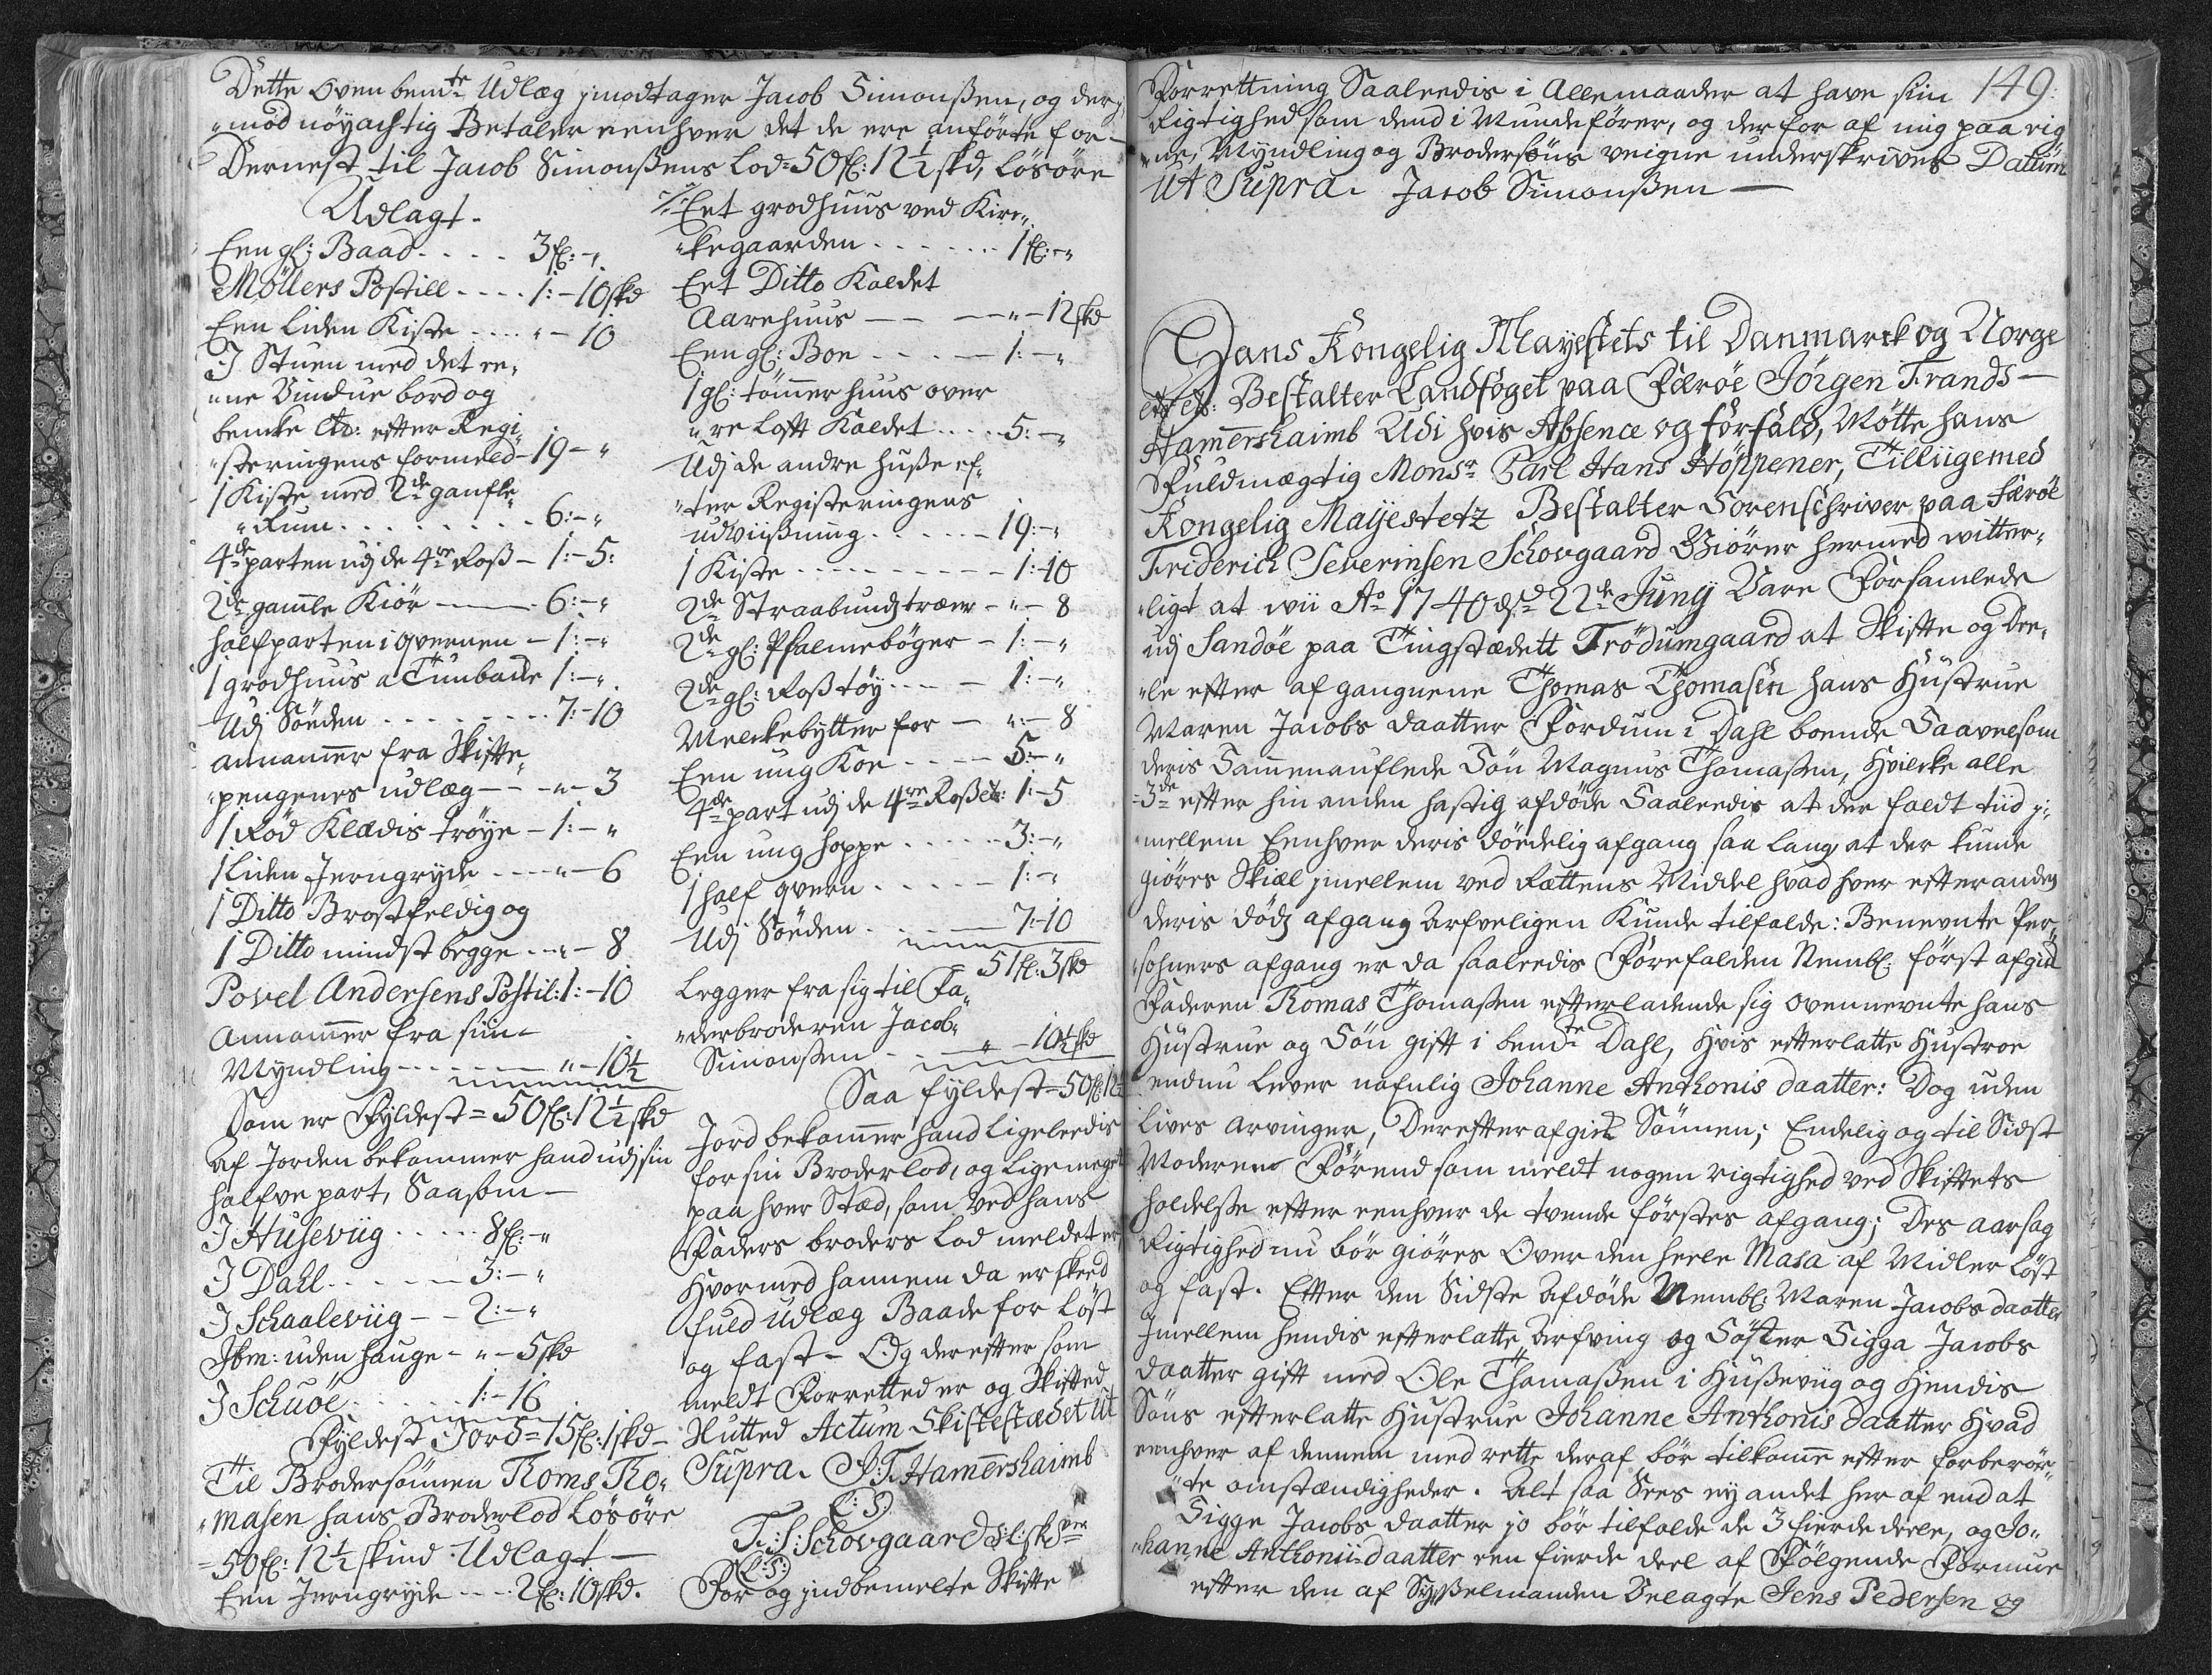 Dette Ovenbemte Udlæg jmodtager Jacob Simonßen, og der„
„mod nöyachtig Betaler eenhver det de ere anförte for —
Dernest til Jacob Simonßens Lod = 50 fl: 12½ skd, Lösöre
Udlagt.
Een gl: Baad . . . . 3 fl: – „
Möllers Postill . . . . 1: – 10 skd
Een liden Kiste . . . . „ – 10
J Stuen med det ee„
„ne Vindue bord og
bencke etc: efter Regi„
„steringens formeld – 19 – „
1 Kiste med 2de ganske
„Rum . . . . . . . . 6: – „
4de parten udj de 4re Roß – 1: – 5:
2de gamle Kiör — 6: – „
halfparten i qvernen – 1: – „
1 grodhuus a Tünbacke 1: – „
Udj Söeden . . . . . . . 7: – 10
annammer fra Skifte„
„pengenes udlæg – – „ – 3
1 Röd Klædis tröye – 1: – „
1 Liden Jerngryde - - - „ – 6
1 Ditto Brostfeldig og
1 Ditto mindst begge - „ – 8
Povel Andersens Postil: 1: – 10
Annammer fra sin
Myndling - - - - - - „ – 10½
Som er Fyldest = 50 fl: 12½ skd
af Jorden bekommer hand udj sin
halfve part, Saasom —
J Husevüg . . . . . 8 fl: – „
J Dahl . . . . — 3: – „
J Schaalevüg – – 2: – „
Jbm: uden hauge - „ – 5 skd
J Schuöe . . . . . . 1: – 16
Fyldest Jord = 15 fl: 1 skd –
Til Brodersönnen Roms Ro„
„masen hans Broderlod Lösöre
= 50 fl: 12½ skind Udlagt —
Een Jerngryde - - - 2 fl: 10 skd.
Eet grodhuus ved Kire„
„kegaarden . . . . . . . 1 fl: – „
Eet Ditto Kaldet
Aarehuus — — — „ – 12 skd
Een gl: Boe . . . — 1: – „
1 gl: tömmer huus over
„re Loft Kaldet . . . . 5: – „
Udj de andre Huße ef„
„ter Registeringens
udviißning . . . . . – 19: – „
1 Kiste - - - - - - - - - 1: – 10
2de Straabundj træer – „ – 8
2de gl: Psalmeböger – 1: – „
2de gl: Roßtöy . . . — 1: – „
Melckebytter for — „ – 8
Een ung Koe . . . – 5: – „
4de part udj de 4re Roß etc: 1: – 5
Een ung hoppe . . . . . 3: – „
1 half qvern . . . . – 1: – „
Udj Söeden . . . — 7: – 10
51 fl: 3 skd
Legger fra sig til Fa„
„derbroderen Jacob„
Simonßen - . — „ – 10½ skd
Saa fyldest = 50 fl: 12½
Jord bekommer hand Ligeleedis
for sin Broderlod, og Ligemeget
paa hver Stæd, som ved hans
Faders broders Lod meldet er,
hvormed hannem da er skeed
fuld Udlæg Baade for Löst
og fast – Og derefter som
meldt Forretted er og Skifted
Slutted Actum Skiftestædet Ut
Supra. J: F: Hamershaimb
(L:S:)
F: S: Schovgaard S: l: Skrer
(L:S:)
For og jndbemelte Skifte
149:
Forrettning Saaleedis i Allemaader at have sin
Rigtighed som dend i Munde förer, og der for af mig paa eig
„ne, Myndling og Brodersöns veigne underskriver Datum
Ut Supra. Jacob Simonßen —
Hans Kongelig Mayestets til Danmarck og Norge
etc etc: Bestalter Landfoget paa Færöe Jörgen Frands —
Hamershaimb Udi hvis Absence og forfald, Mötte hans
Fuldmægtig Monsr Carl Hans Höppener, Tilliigemed
Kongelig Mayestetz Bestalter Sorenschriver paa Færöe
Friderich Severinsen Schovgaard Giörer hermed witter„
„ligt at wii Ao 1740 dsd 22de Junij Vare Forsamlede
udj Sandöe paa Tingstædett Trödumgaard at Skifte og Dee„
„le efter afgangnene Thomas Thomasen hans Hüstrue
Maren Jacobs daatter Fordum i Dahl boende Saavelsom
deris Sammenauflede Sön Magnus Thomaßen, Hvilcke alle
=3de efter hin anden hastig afdöde Saaleedis at der faldt tüd j„
„mellem Eenhver deris dödelig afgang saa lang at der kunde
giöres Skiæl jmellem ved Rættens Middel hvad hver efter anden
deris dödj afgang Arfveligen Kunde tilfalde: Benevnte Per„
„sohners afgang er da saaleedis Forefalden Nembl: först afgick
Faderen Thomas Thomaßen efterladende sig ovennevnte hans
Hüstrue og Sön gift i bemte Dahl, hvis efterlatte Hustroe
endnu lever nafnlig Johanne Anthonis daatter: Dog uden
Lives arvinger, Derefter afgick Sönnen; Endelig og til Sidst
Moderen Förend som meldt nogen rigtighed ved Skiftets
holdelße efter eenhver de tvende förstes afgang; Des aarsag
Rigtighed nu bör giöres Over den heele Masa af Midler Löst
og fast. Efter den Sidste Afdöde Nembl: Maren Jacobs daatter
Jmellem hendis efterlatte Arfving og Söster Sigga Jacobs
daatter gift med Ole Thomaßen i Hußevüg og hendis
Söns efterlatte Hustrue Johanne Anthonis daatter hvad
eenhver af dennem med rette deraf bör tilkomme efter forberör„
„te omstændigheder. Alt saa Sees ey andet her af end at
Sigge Jacobs daatter jo bör tilfalde de 3 fierde deele, og Jo„
„hanne Anthonii daatter een fierde deel af Fölgende Formue
efter den af Sysselmanden Velagte Jens Pedersen og